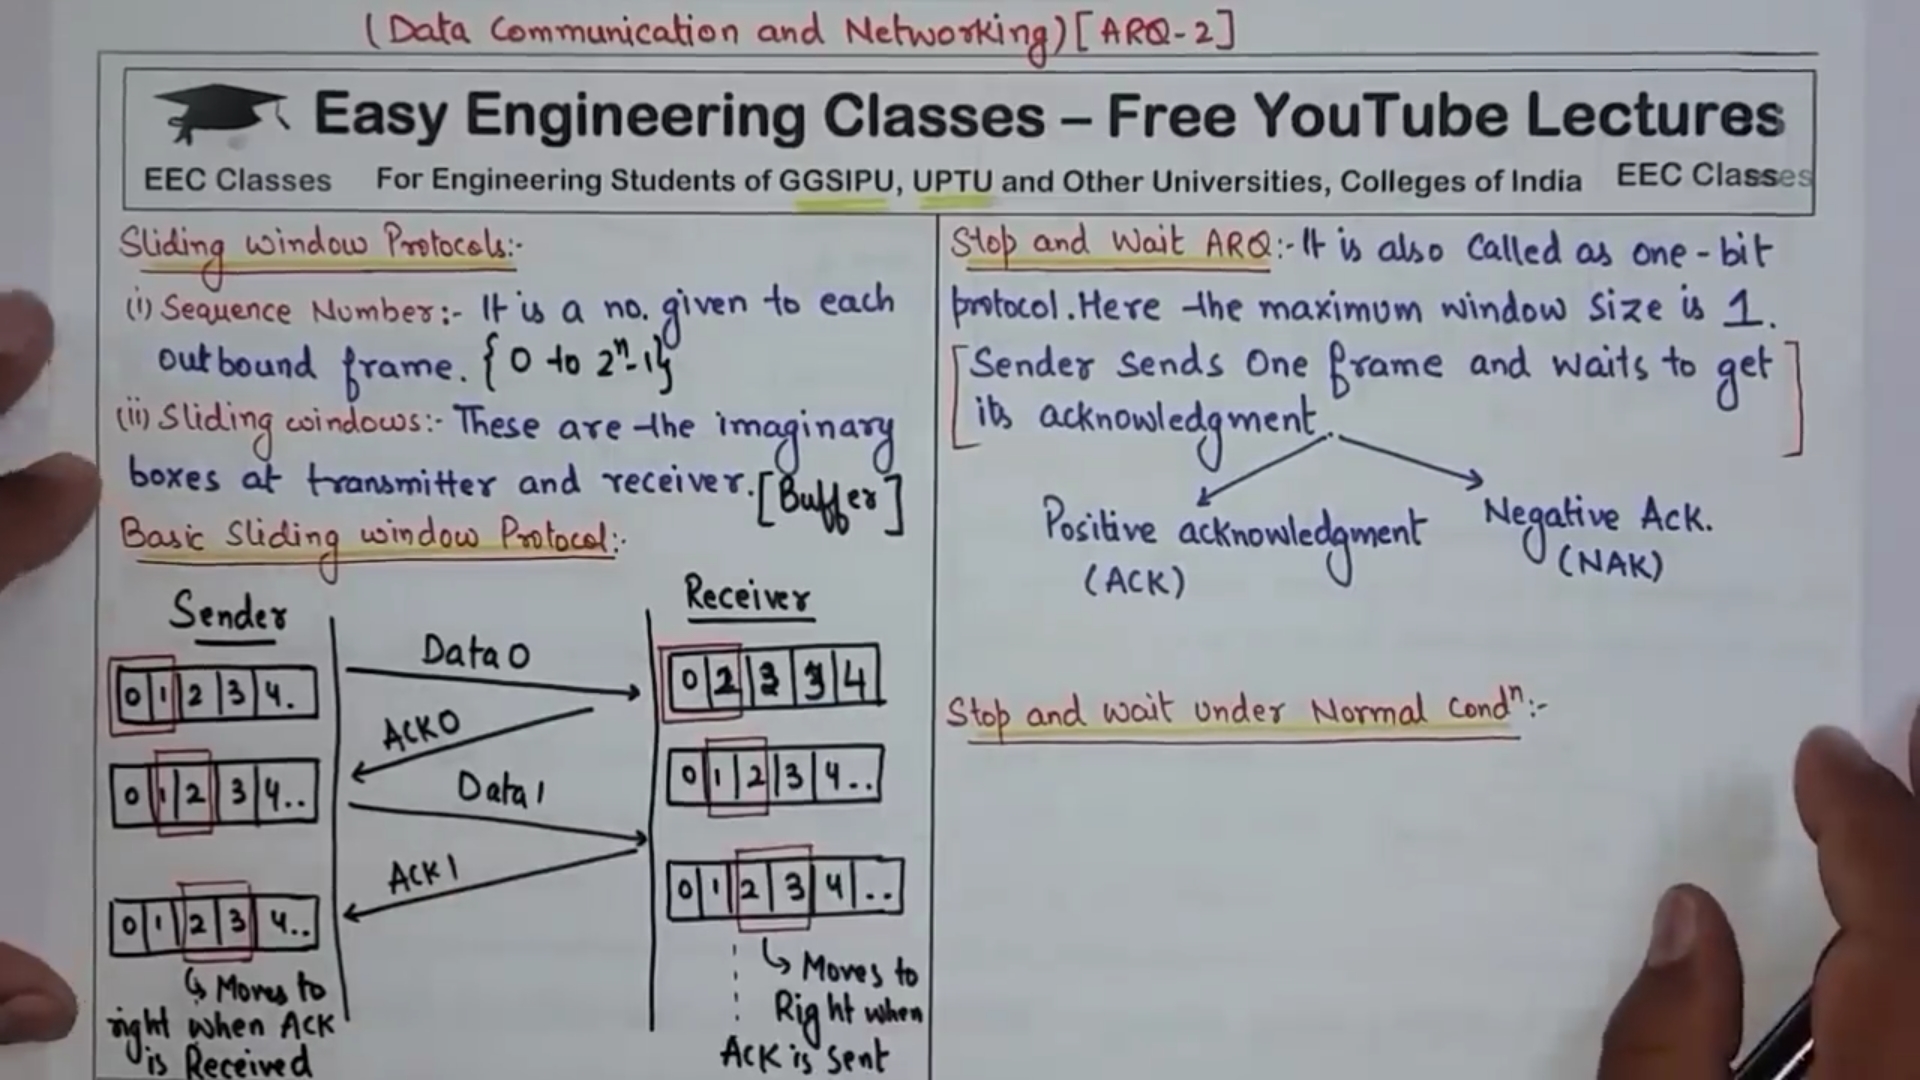 (Data Communication and Networking) [ARQ-2]
Easy Engineering Classes – Free YouTube Lectures
EEC Classes For Engineering Students of GGSIPU, UPTU and Other Universities, Colleges of India EEC Classes
Sliding window Protocols:-
(i) Sequence Number:- It is a no. given to each
outbound frame. {0 to 2ⁿ-1}
(ii) Sliding windows:- These are the imaginary
boxes at transmitter and receiver. [Buffer]
Basic Sliding window Protocol:-
Sender
Receiver
0 1 2 3 4.
Data 0
0 2 3 4
ACK 0
0 1 2 3 4..
Data 1
0 1 2 3 4..
ACK 1
0 1 2 3 4..
0 1 2 3 4 ..
Moves to
right when ACK
is Received
Moves to
Right when
ACK is sent
Stop and Wait ARQ:- It is also called as one-bit
protocol. Here the maximum window size is 1.
[Sender sends One frame and waits to get
its acknowledgment.]
Positive acknowledgment
(ACK)
Negative Ack.
(NAK)
Stop and wait under Normal Condⁿ:-